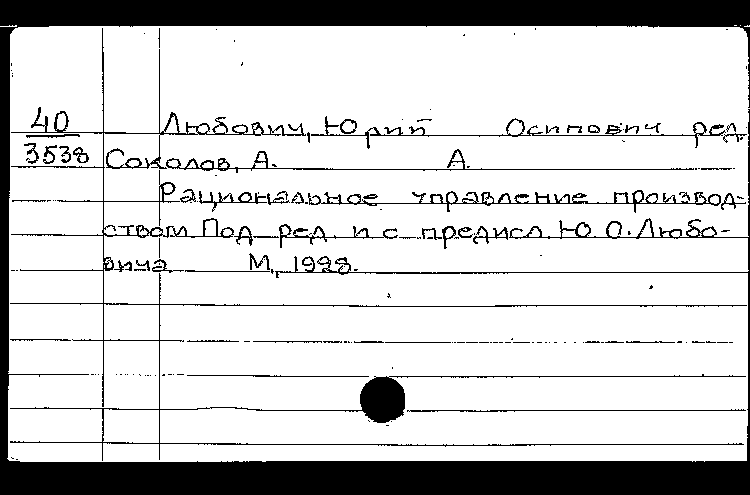 40 Любович, Юрий Осипович ред.
3538 Соколов, А. А.
Рациональное управление производ-
ством. Под ред. и с предисл. Ю.О. Любо-
вича М., 1928.